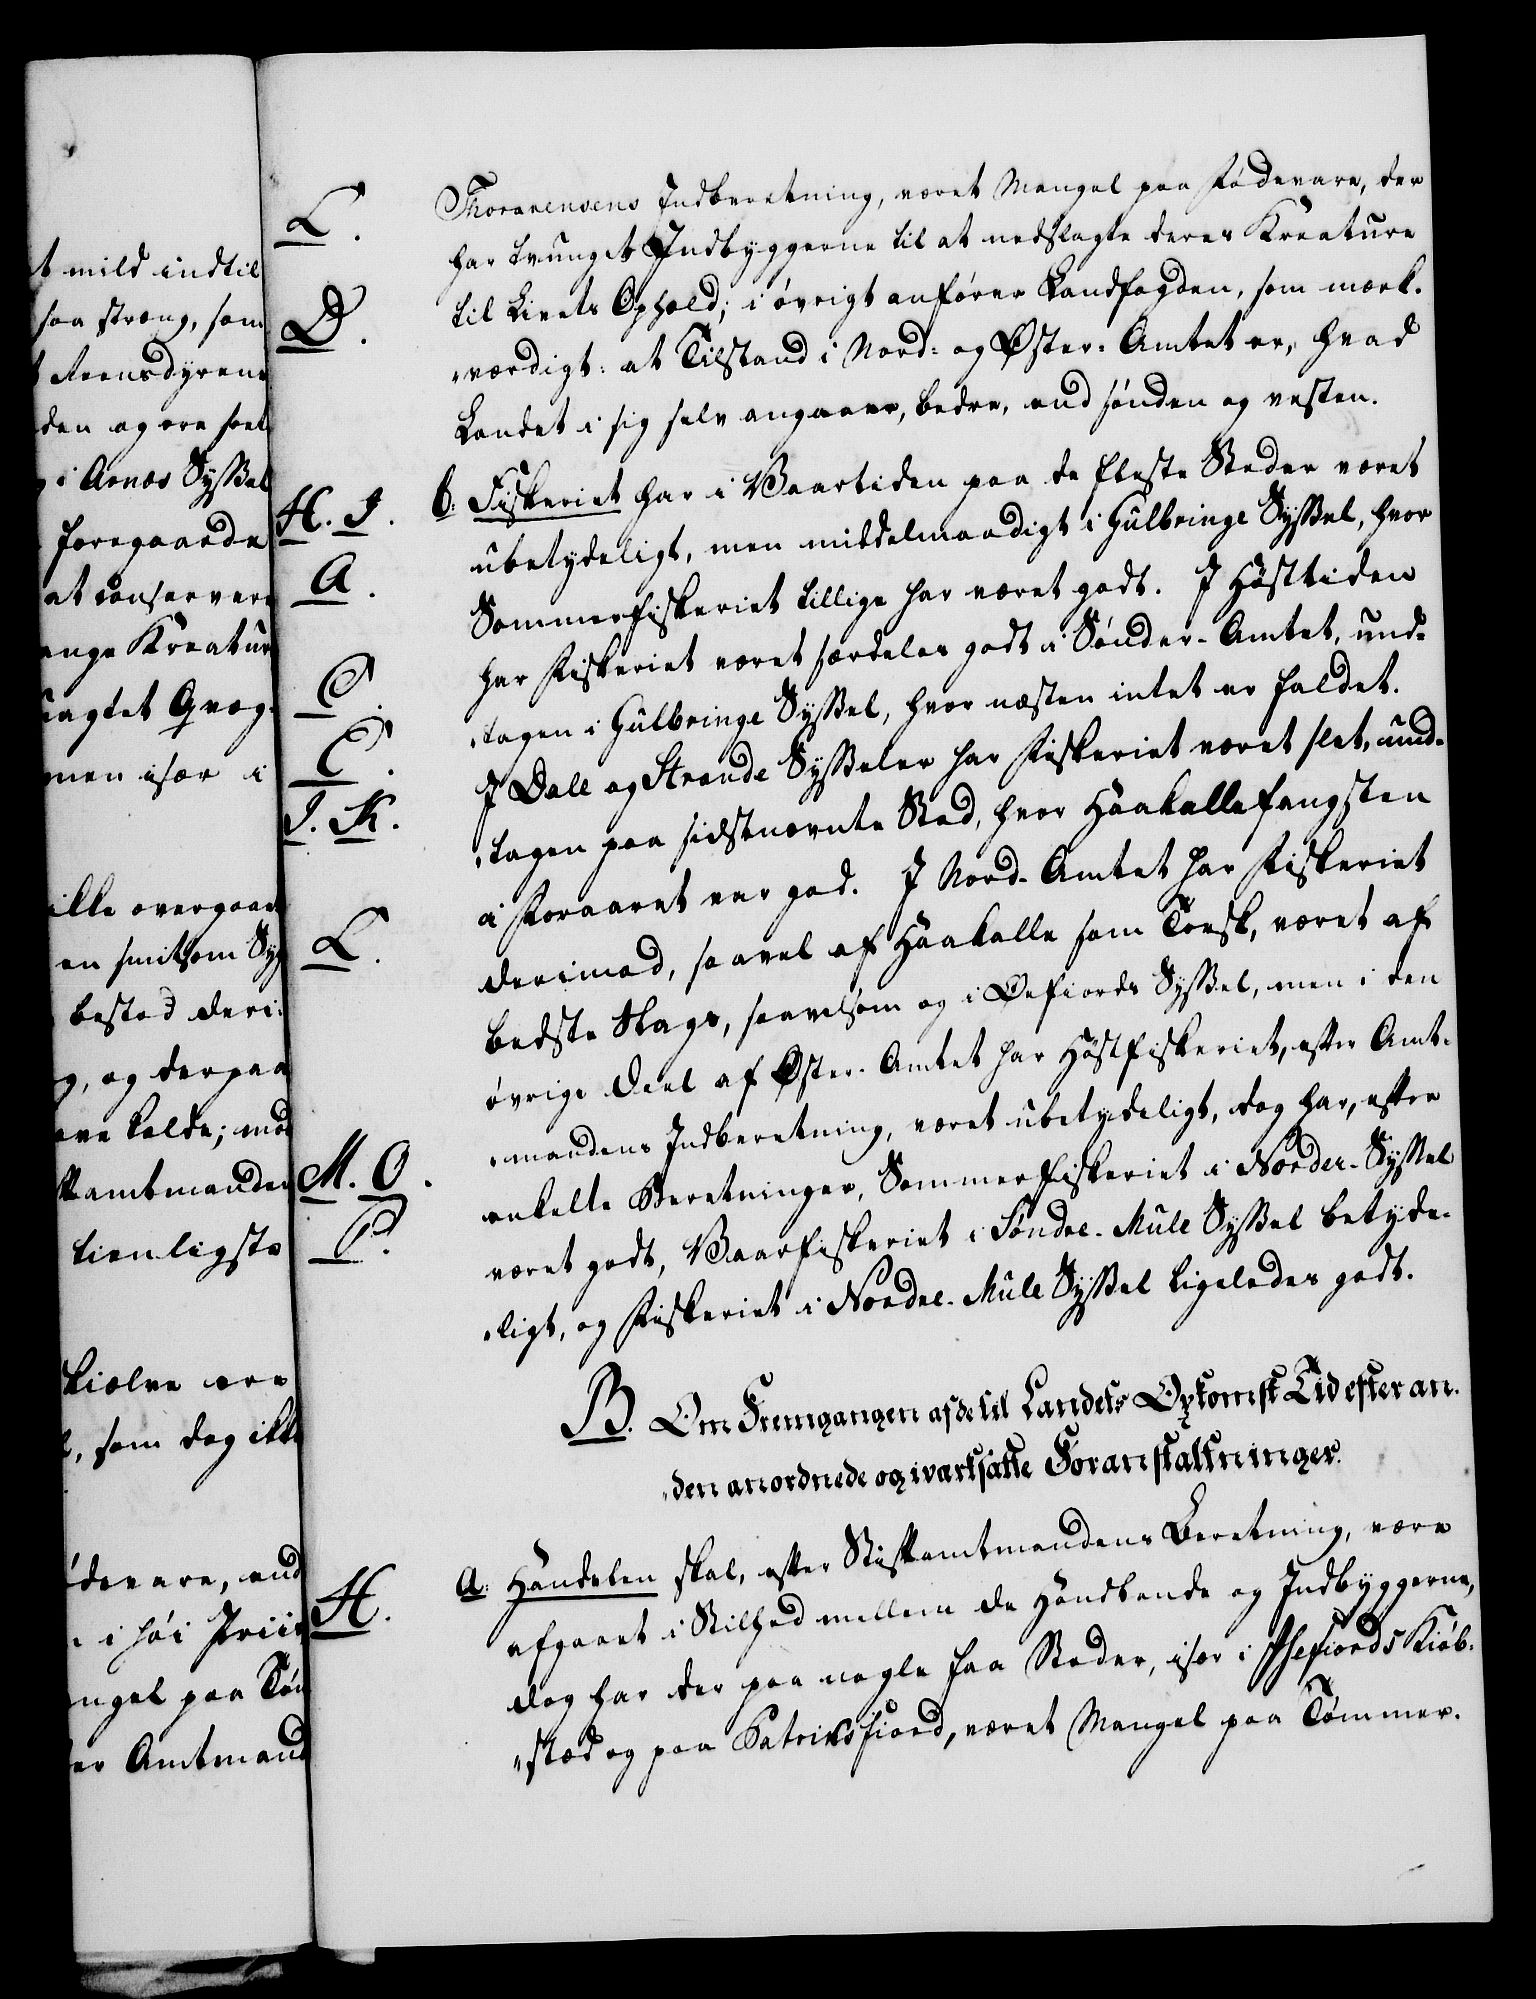 t mild indtil
saa stræng, som
Reensdyrene
den og ere heel
i Arnæs Syssel
foregaaende
at conservere
ange Kreatur
uagtet Qvæg-
men især i
ikke overgaae
en smitsom Syg
bestod deri
g, og derpaa
ere kolde; mod
ftamtmanden
tienligste
skiølve ere
l, som dog ikke
ødevare, end
i høi Priis
ngel paa Tøm
er Amtmand
L.
Thorarensens Indberetning, været Mangel paa Fødevare, der
har tvunget Indbyggerne til at nedslagte deres Kreature
D.
til Livets Ophold; i øvrigt anfører Landfogden, som mærk-
værdigt: at Tilstand i Nord- og Øster-Amtet er, hvad
Landet i sig selv angaaer, bedre, end sønden og vesten.
H. I.
b: Fiskeriet har i Vaartiden paa de fleste Steder været
ubetydeligt, men middelmaadigt i Gulbringe Syssel, hvor
A.
Sommerfiskeriet tillige har været godt. I Høsttiden
har Fiskeriet været særdeles godt i Sønder-Amtet, und-
C.
tagen i Gulbringe Syssel, hvor næsten intet er faldet.
E.
I Dale og Strande Sysseler har Fiskeriet været slet, und-
I. K.
tagen paa sidstnævnte Sted, hvor Haakallefangsten
i Foraaret var god. I Nord-Amtet har Fiskeriet
L.
derimod, saavel af Haakalle som Torsk, været af
bedste Slags, saavelsom og i Øefiords Syssel, men i den
øvrige Deel af Øster-Amtet har Høstfiskeriet, efter Amt-
mandens Indberetning, været ubetydeligt, dog har, efter
M. O.
enkelte Beretninger, Sommerfiskeriet i Norder-Syssel
P.
været godt, Vaarfiskeriet i Sønder-Mule Syssel betyde-
ligt, og Fiskeriet i Norder-Mule Syssel ligeledes godt.
B. Om Fremgangen af de til Landets Opkomst Tid efter an-
den anordnede og iværksatte Foranstaltninger.
a: Handelen skal, efter Stiftamtmandens Beretning, være
H.
afgaaet i Stilhed mellem de Handlende og Indbyggerne,
dog har der paa nogle faa Steder, især i Isefiords Kiøb-
stæd og paa Patriksfiord, været Mangel paa Tømmer.